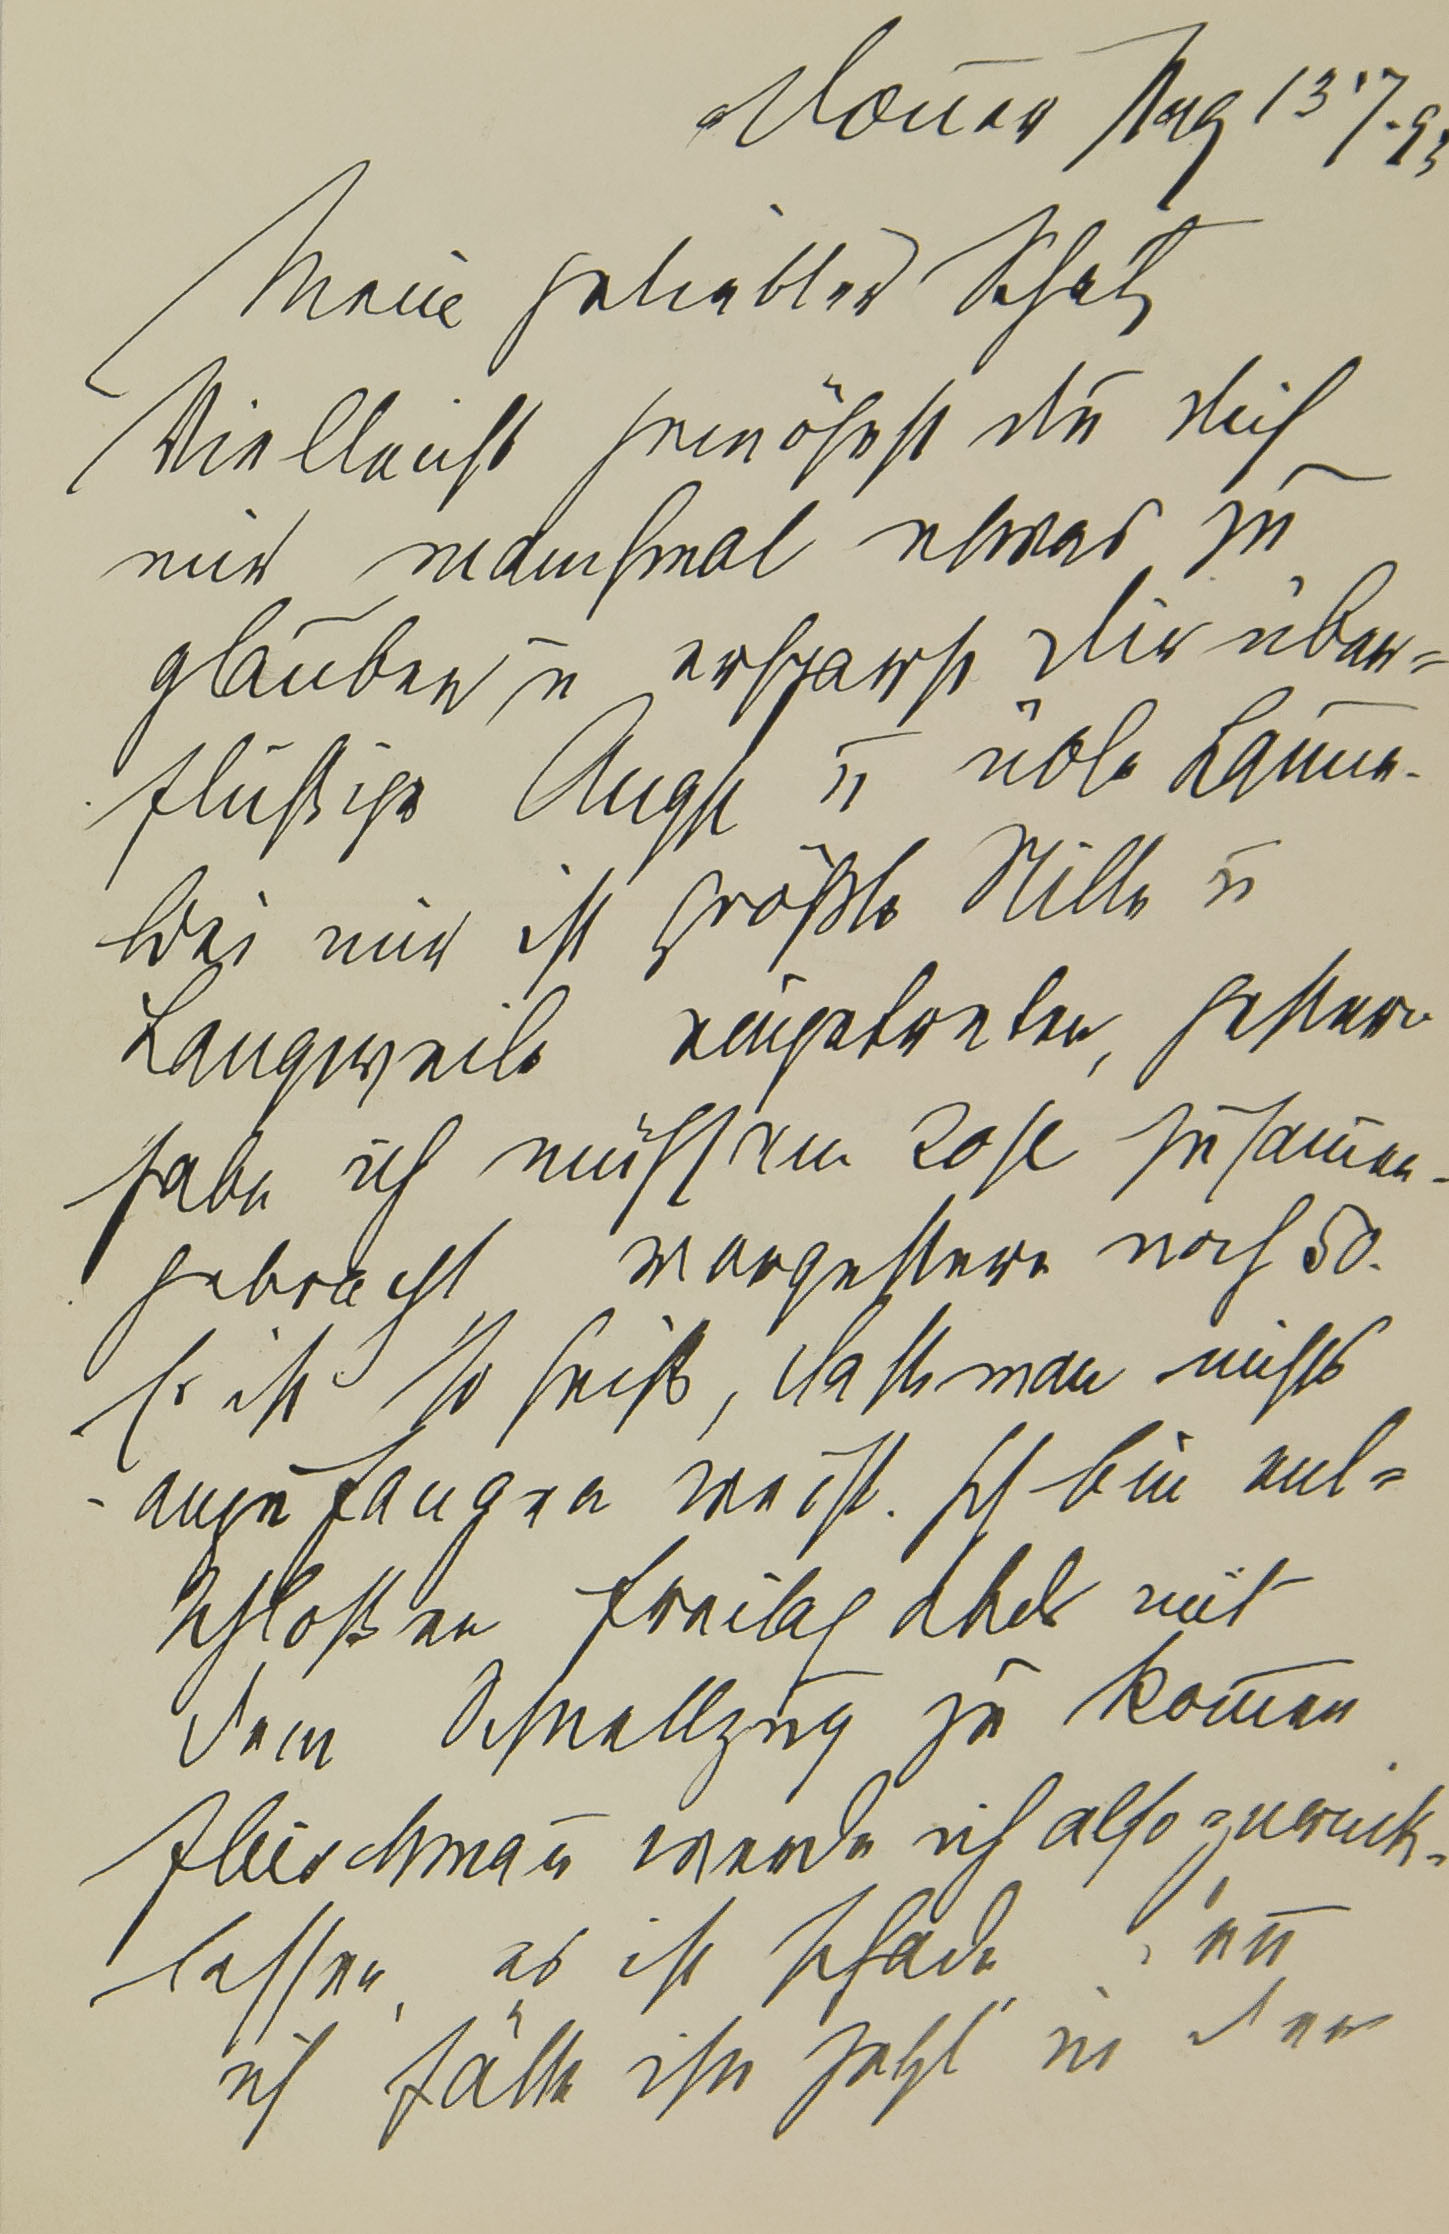 Donnerstag 13/7.93
Mein geliebter Schatz
Vielleicht gewöhnst du dich
mir manchmal etwas zu
glauben u ersparst dir über=
flüßige Angst u üble Laune.
Bei mir ist größte Stille u
Langweile eingetreten, gestern
habe ich mühsam 20 fl zusamen=
gebracht vorgestern noch 50.
Es ist so heiß, daß man nichts
anzufangen weiß. Ich bin ent=
schloßen Freitag Abds mit
dem Schnellzug zu komen
Fleischmañ werde ich also zurück=
lassen, es ist schade deñ
ich hätte ihn jetzt in der